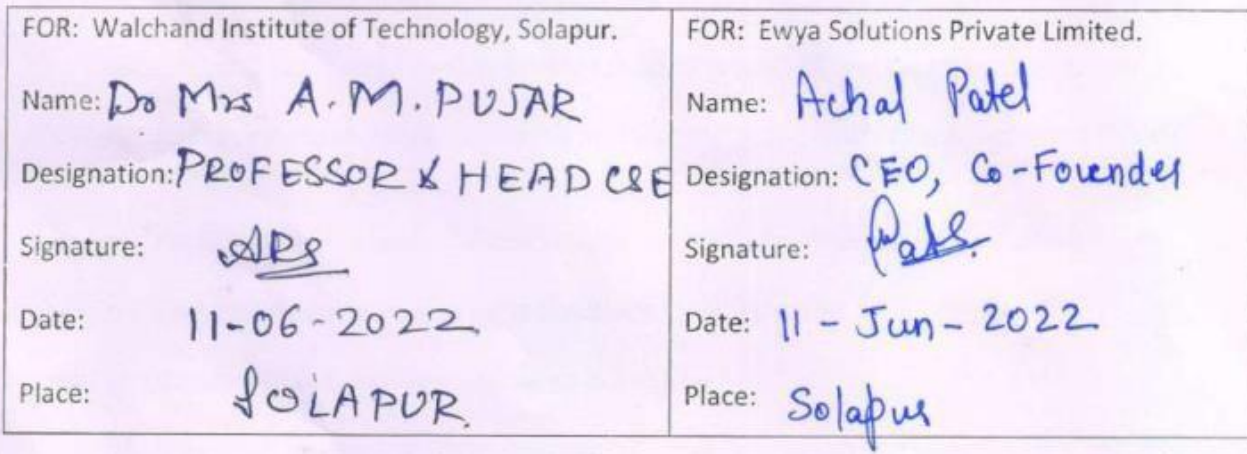 FOR: Walchand Institute of Technology, Solapur.
Name: Dr Mrs A. M. PUJAR
Designation: PROFESSOR & HEAD CSE
Signature:
Date: 11-06-2022
Place: SOLAPUR.
FOR: Ewya Solutions Private Limited.
Name: Achal Patel
Designation: CEO, Co-Founder
Signature:
Date: 11 - Jun - 2022
Place: Solapur